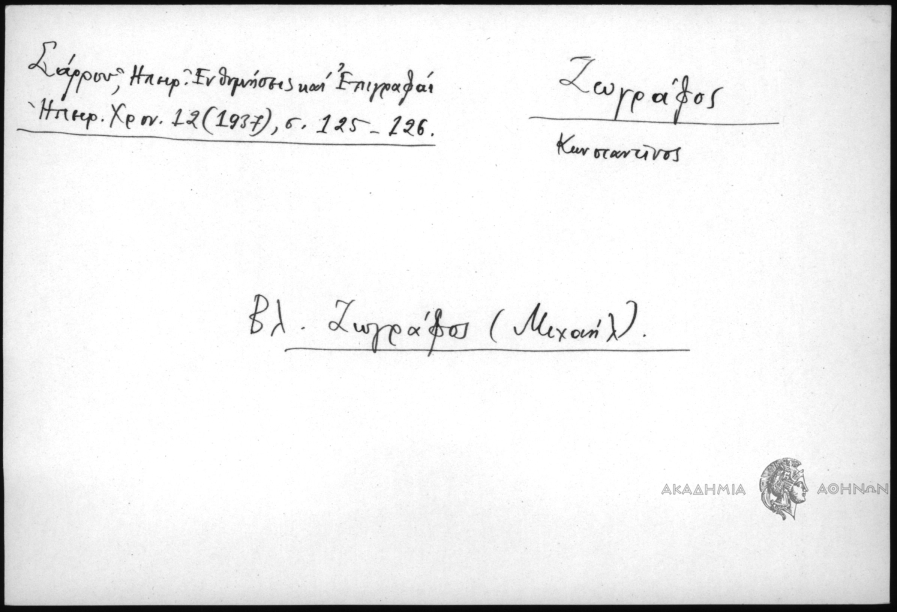 Σάρρου, Ηπειρ. Ενθυμήσεις καί Ἐπιγραφαί
Ἠπειρ. Χρον. 12 (1937), σ. 125-126.
Ζωγράφος
Κωνσταντῖνος
Βλ. Ζωγράφος (Μιχαήλ).
ΑΚΑΔΗΜΙΑ ΑΘΗΝΩΝ